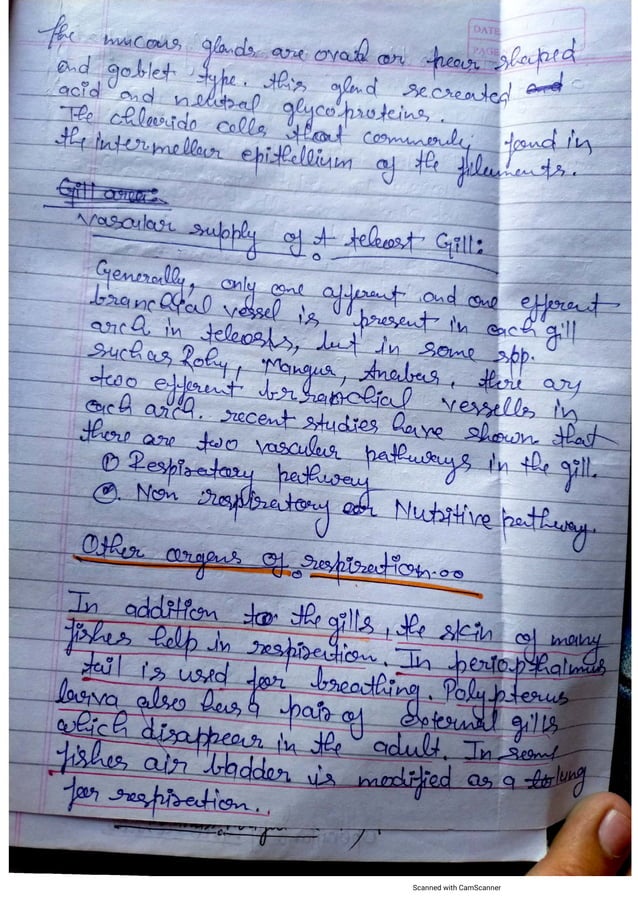 DATE
PAGE
the mucous glands are ovail or pear shaped
and goblet type. this gland secreated and
acid and neutral glycoproteins.
The chloride cells that commonly found in
the intermellar epithellium of the filaments.
Gill area:
Vascular supply of A teleost Gill:
Generally, only one afferent and one efferent
branchial vessel is present in each gill
arch in teleosts, but in some spp.
such as Rohy, Mangur, Anabus, there ary
two efferent branchial vesselles in
each arch. recent studies have shown that
there are two vascular pathways in the gill.
① Respiratory pathway
②. Non respiratory or Nutritive pathway.
Other organs of respiration.
In addition to the gills, the skin of many
fishes help in respiration. In periopthalmus
tail is used for breathing. Polypterus
larva also has a pair of external gills
which disappear in the adult. In some
fishes air bladder is modified as a lung
for respiration.
Scanned with CamScanner